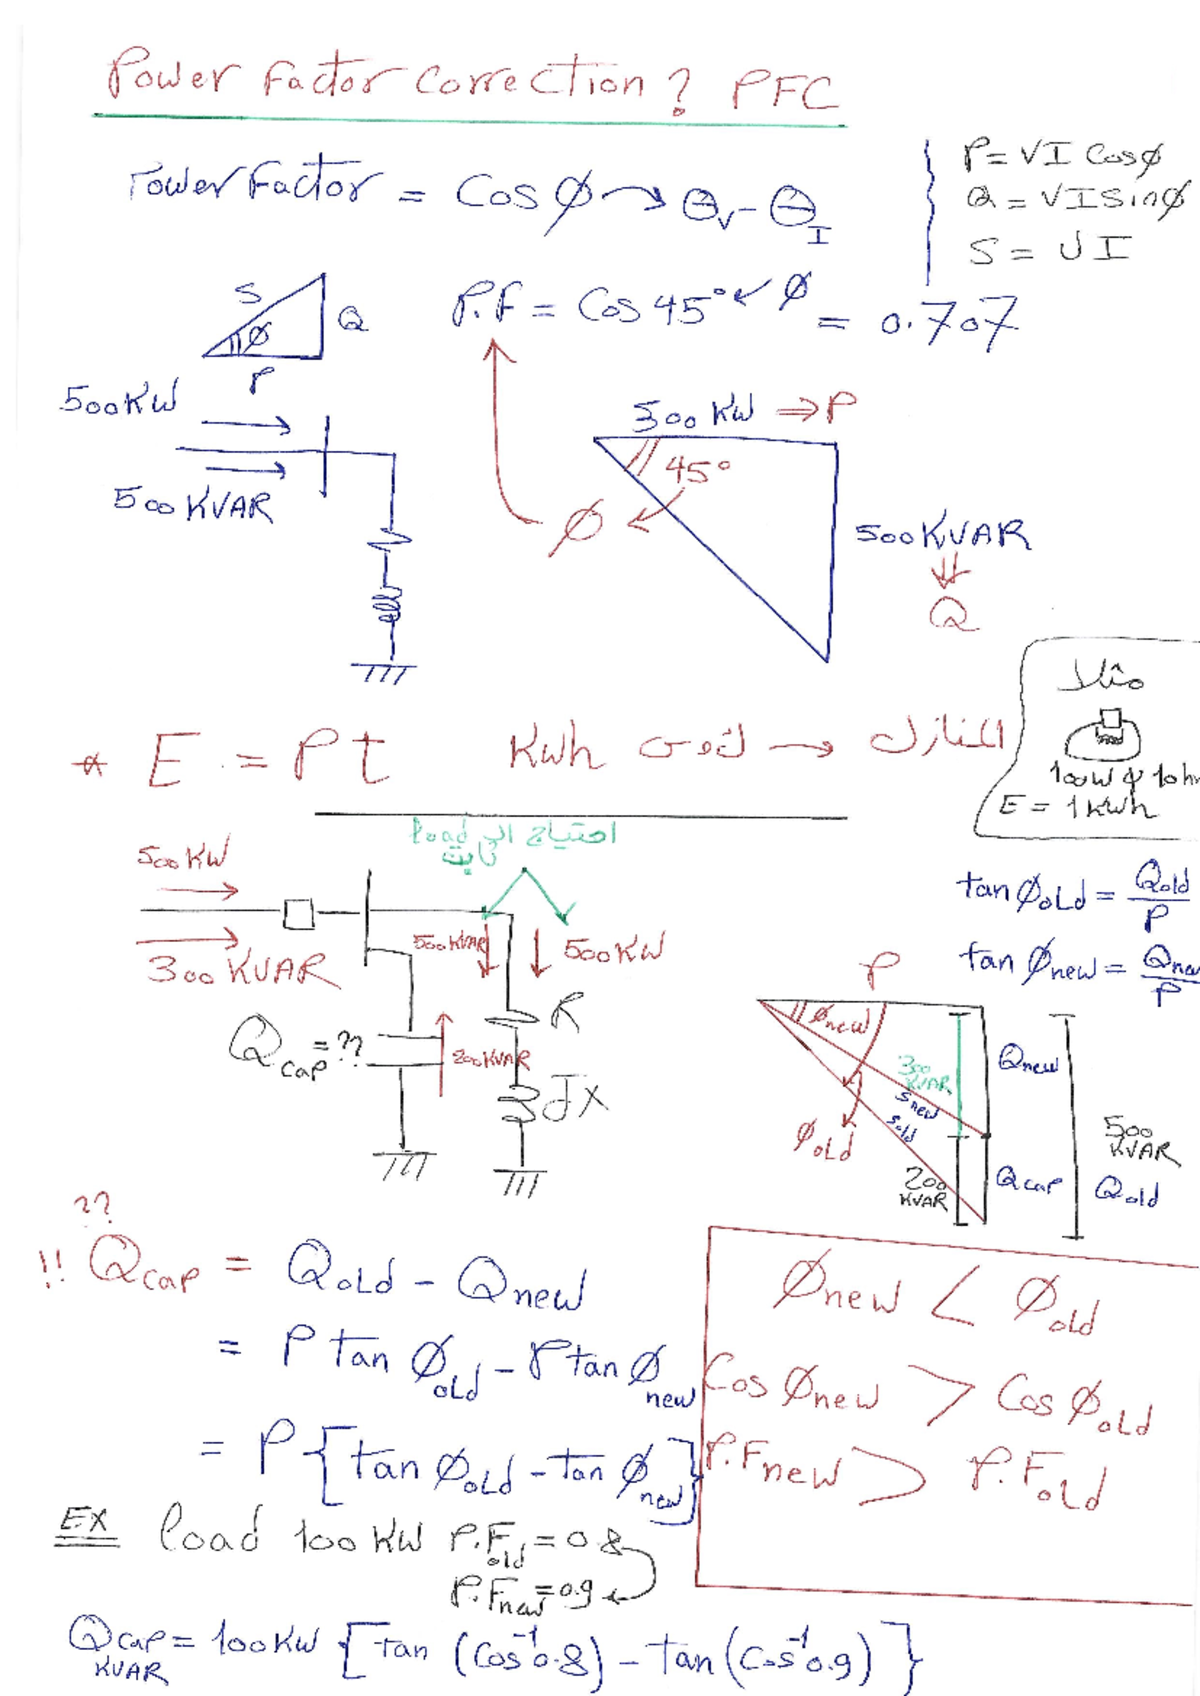 Power Factor Correction? PFC
Power Factor = Cos Ø → θV - θI
P = VI CosØ
Q = VI SinØ
S = VI
S
Q
Ø
P
P.F = Cos 45° ← Ø = 0.707
500KW
500KVAR
500 KW ⇒ P
45°
Ø
500KVAR
⇓
Q
* E = Pt Kwh المنازل →
مثلا
100W & 10hr
E = 1 kwh
احتياج الـ load
ثابت
500KW
300 KVAR
500KVAR
500KW
R
JX
Qcap = ??
200KVAR
tan Øold = Qold / P
tan Ønew = Qnew / P
P
Ønew
Øold
300 KVAR
Snew
Sold
200 KVAR
Qnew
Qcap
500 KVAR
Qold
??
!! Qcap = Qold - Qnew
= P tan Øold - P tan Ønew
= P {tan Øold - tan Ønew}
Ønew < Øold
Cos Ønew > Cos Øold
P.Fnew > P.Fold
EX load 100 KW P.Fold = 0.8
P.Fnew = 0.9
Qcap = 100KW [tan (Cos⁻¹ 0.8) - tan (Cos⁻¹ 0.9)}
KVAR